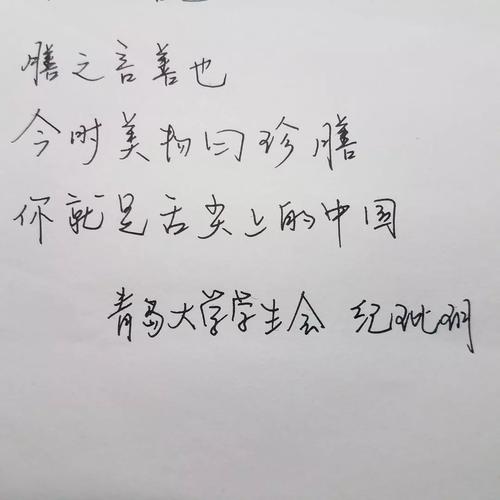 膳之言善也
今时美物曰珍膳
你就是舌尖上的中国
青岛大学学生会 纪